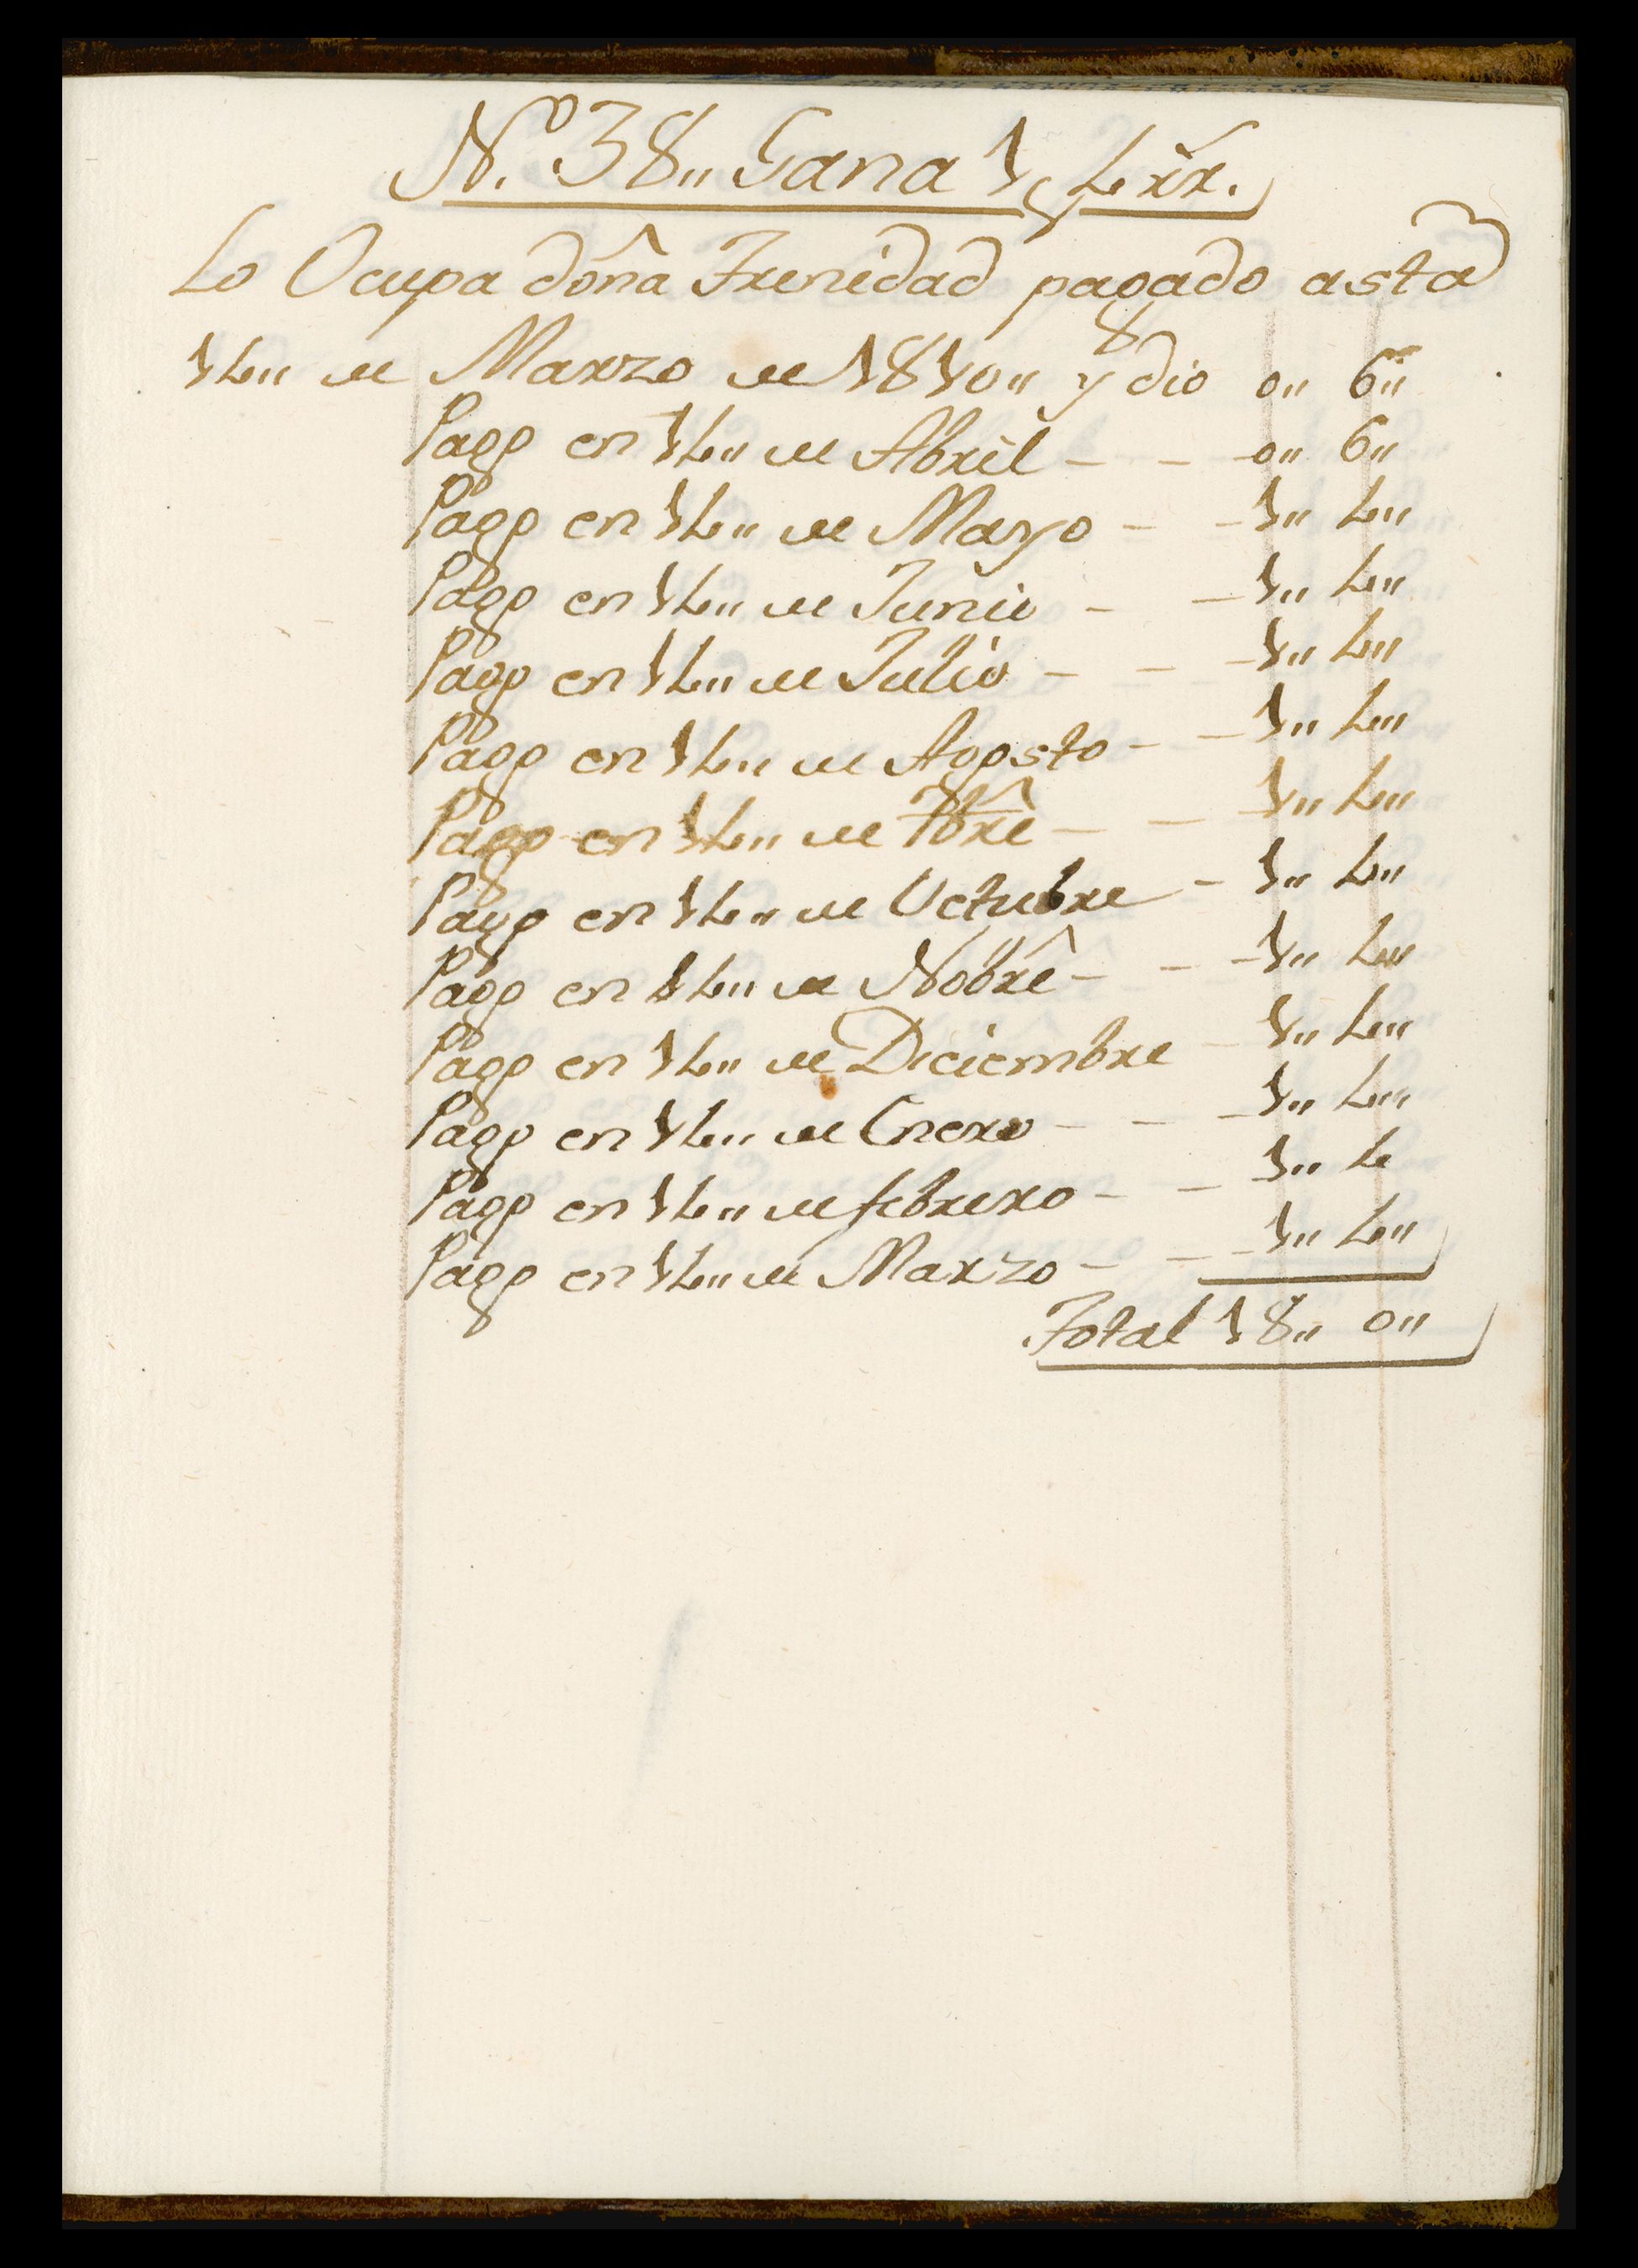 N.º 38,, Gana 1 p 4 rr.
Lo Ocupa doña Trenidad pagado asta
14,, de Marzo de 1810,, y dio 0,, 6,,
Pago en 14,, de Abril - - 0,, 6,,
Pago en 14,, de Mayo - - 1,, 4,,
Pago en 14,, de Junio - - 1,, 4,,
Pago en 14,, de Julio - - - 1,, 4,,
Pago en 14,, de Agosto - - 1,, 4,,
Pago en 14,, de 7bre - - 1,, 4,,
Pago en 14,, de Octubre - 1,, 4,,
Pago en 14,, de Nobre - - - 1,, 4,,
Pago en 14,, de Diciembre - 1,, 4,,
Pago en 14,, de Enero - - - 1,, 4,,
Pago en 14,, de febrero - - 1,, 4
Pago en 14,, de Marzo - - - 1,, 4,,
Total 18,, 0,,